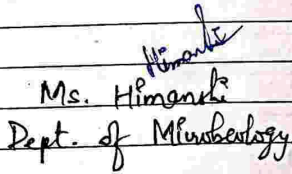 Himanshi
Ms. Himanshi
Dept. of Microbiology